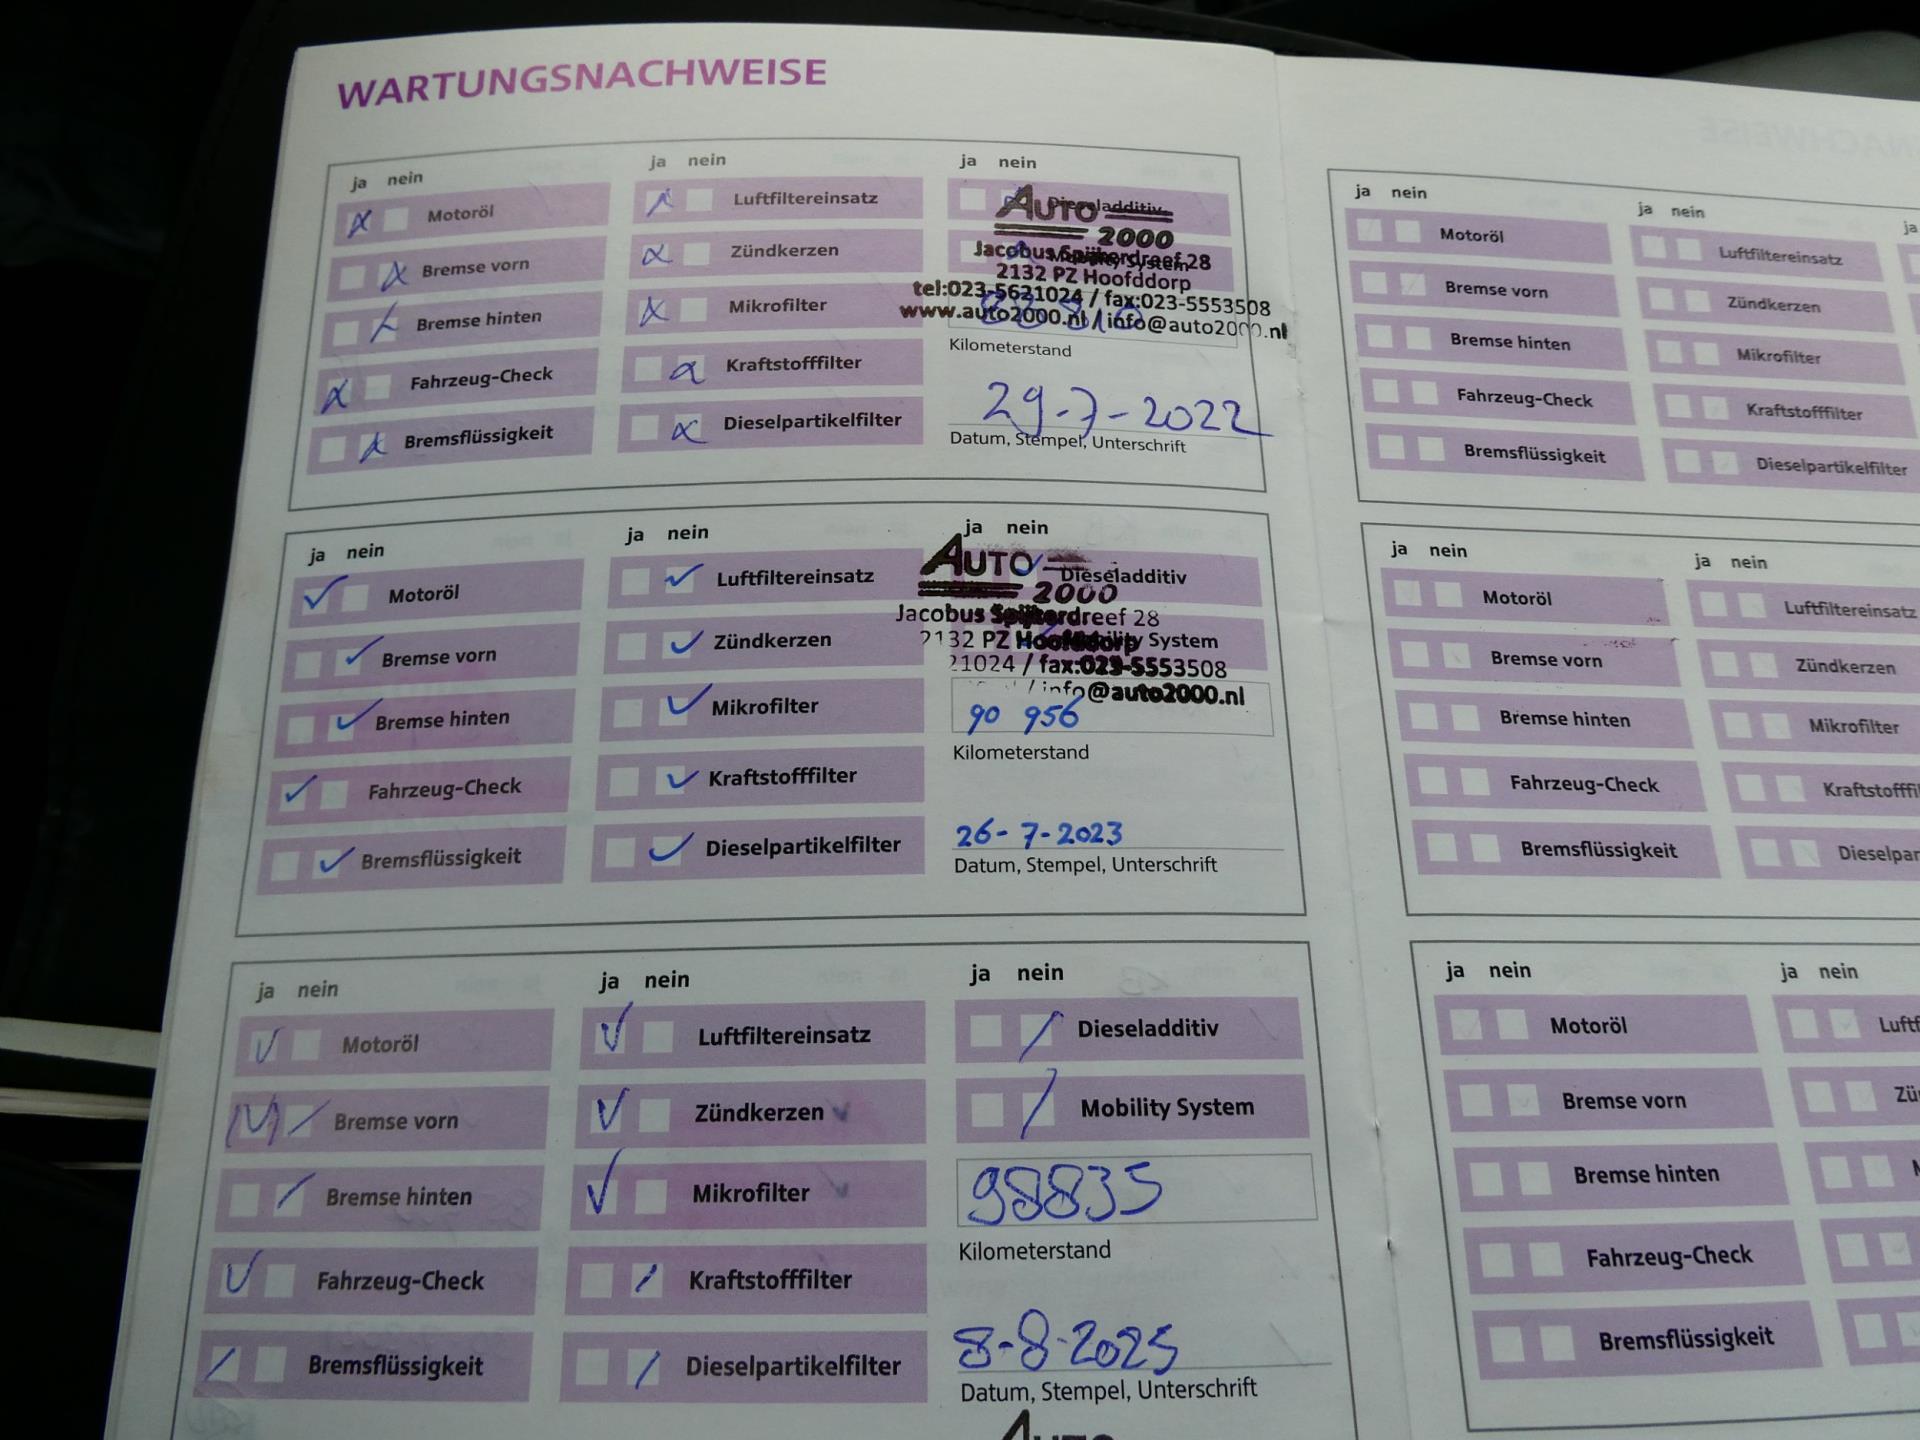 WARTUNGSNACHWEISE
ja nein
Motoröl
Bremse vorn
Bremse hinten
Fahrzeug-Check
Bremsflüssigkeit
ja nein
Luftfiltereinsatz
Zündkerzen
Mikrofilter
Kraftstofffilter
Dieselpartikelfilter
ja nein
Dieseladditiv
Mobility System
AUTO
2000
Jacobus Spijkerdreef 28
2132 PZ Hoofddorp
tel:023-5621024 / fax:023-5553508
www.auto2000.nl / info@auto2000.nl
Kilometerstand
29-7-2022
Datum, Stempel, Unterschrift
ja nein
Motoröl
Bremse vorn
Bremse hinten
Fahrzeug-Check
Bremsflüssigkeit
ja nein
Luftfiltereinsatz
Zündkerzen
Mikrofilter
Kraftstofffilter
Dieselpartikelfilter
ja nein
Dieseladditiv
Mobility System
AUTO
2000
Jacobus Spijkerdreef 28
2132 PZ Hoofddorp
21024 / fax:023-5553508
/ info@auto2000.nl
90 956
Kilometerstand
26-7-2023
Datum, Stempel, Unterschrift
ja nein
Motoröl
Bremse vorn
Bremse hinten
Fahrzeug-Check
Bremsflüssigkeit
ja nein
Luftfiltereinsatz
Zündkerzen
Mikrofilter
Kraftstofffilter
Dieselpartikelfilter
ja nein
Dieseladditiv
Mobility System
98835
Kilometerstand
8-8-2025
Datum, Stempel, Unterschrift
AUTO
ja nein
Motoröl
Bremse vorn
Bremse hinten
Fahrzeug-Check
Bremsflüssigkeit
ja nein
Luftfiltereinsatz
Zündkerzen
Mikrofilter
Kraftstofffilter
Dieselpartikelfilter
ja
ja nein
Motoröl
Bremse vorn
Bremse hinten
Fahrzeug-Check
Bremsflüssigkeit
ja nein
Luftfiltereinsatz
Zündkerzen
Mikrofilter
Kraftstofffi
Dieselpar
ja nein
Motoröl
Bremse vorn
Bremse hinten
Fahrzeug-Check
Bremsflüssigkeit
ja nein
Luft
Zü